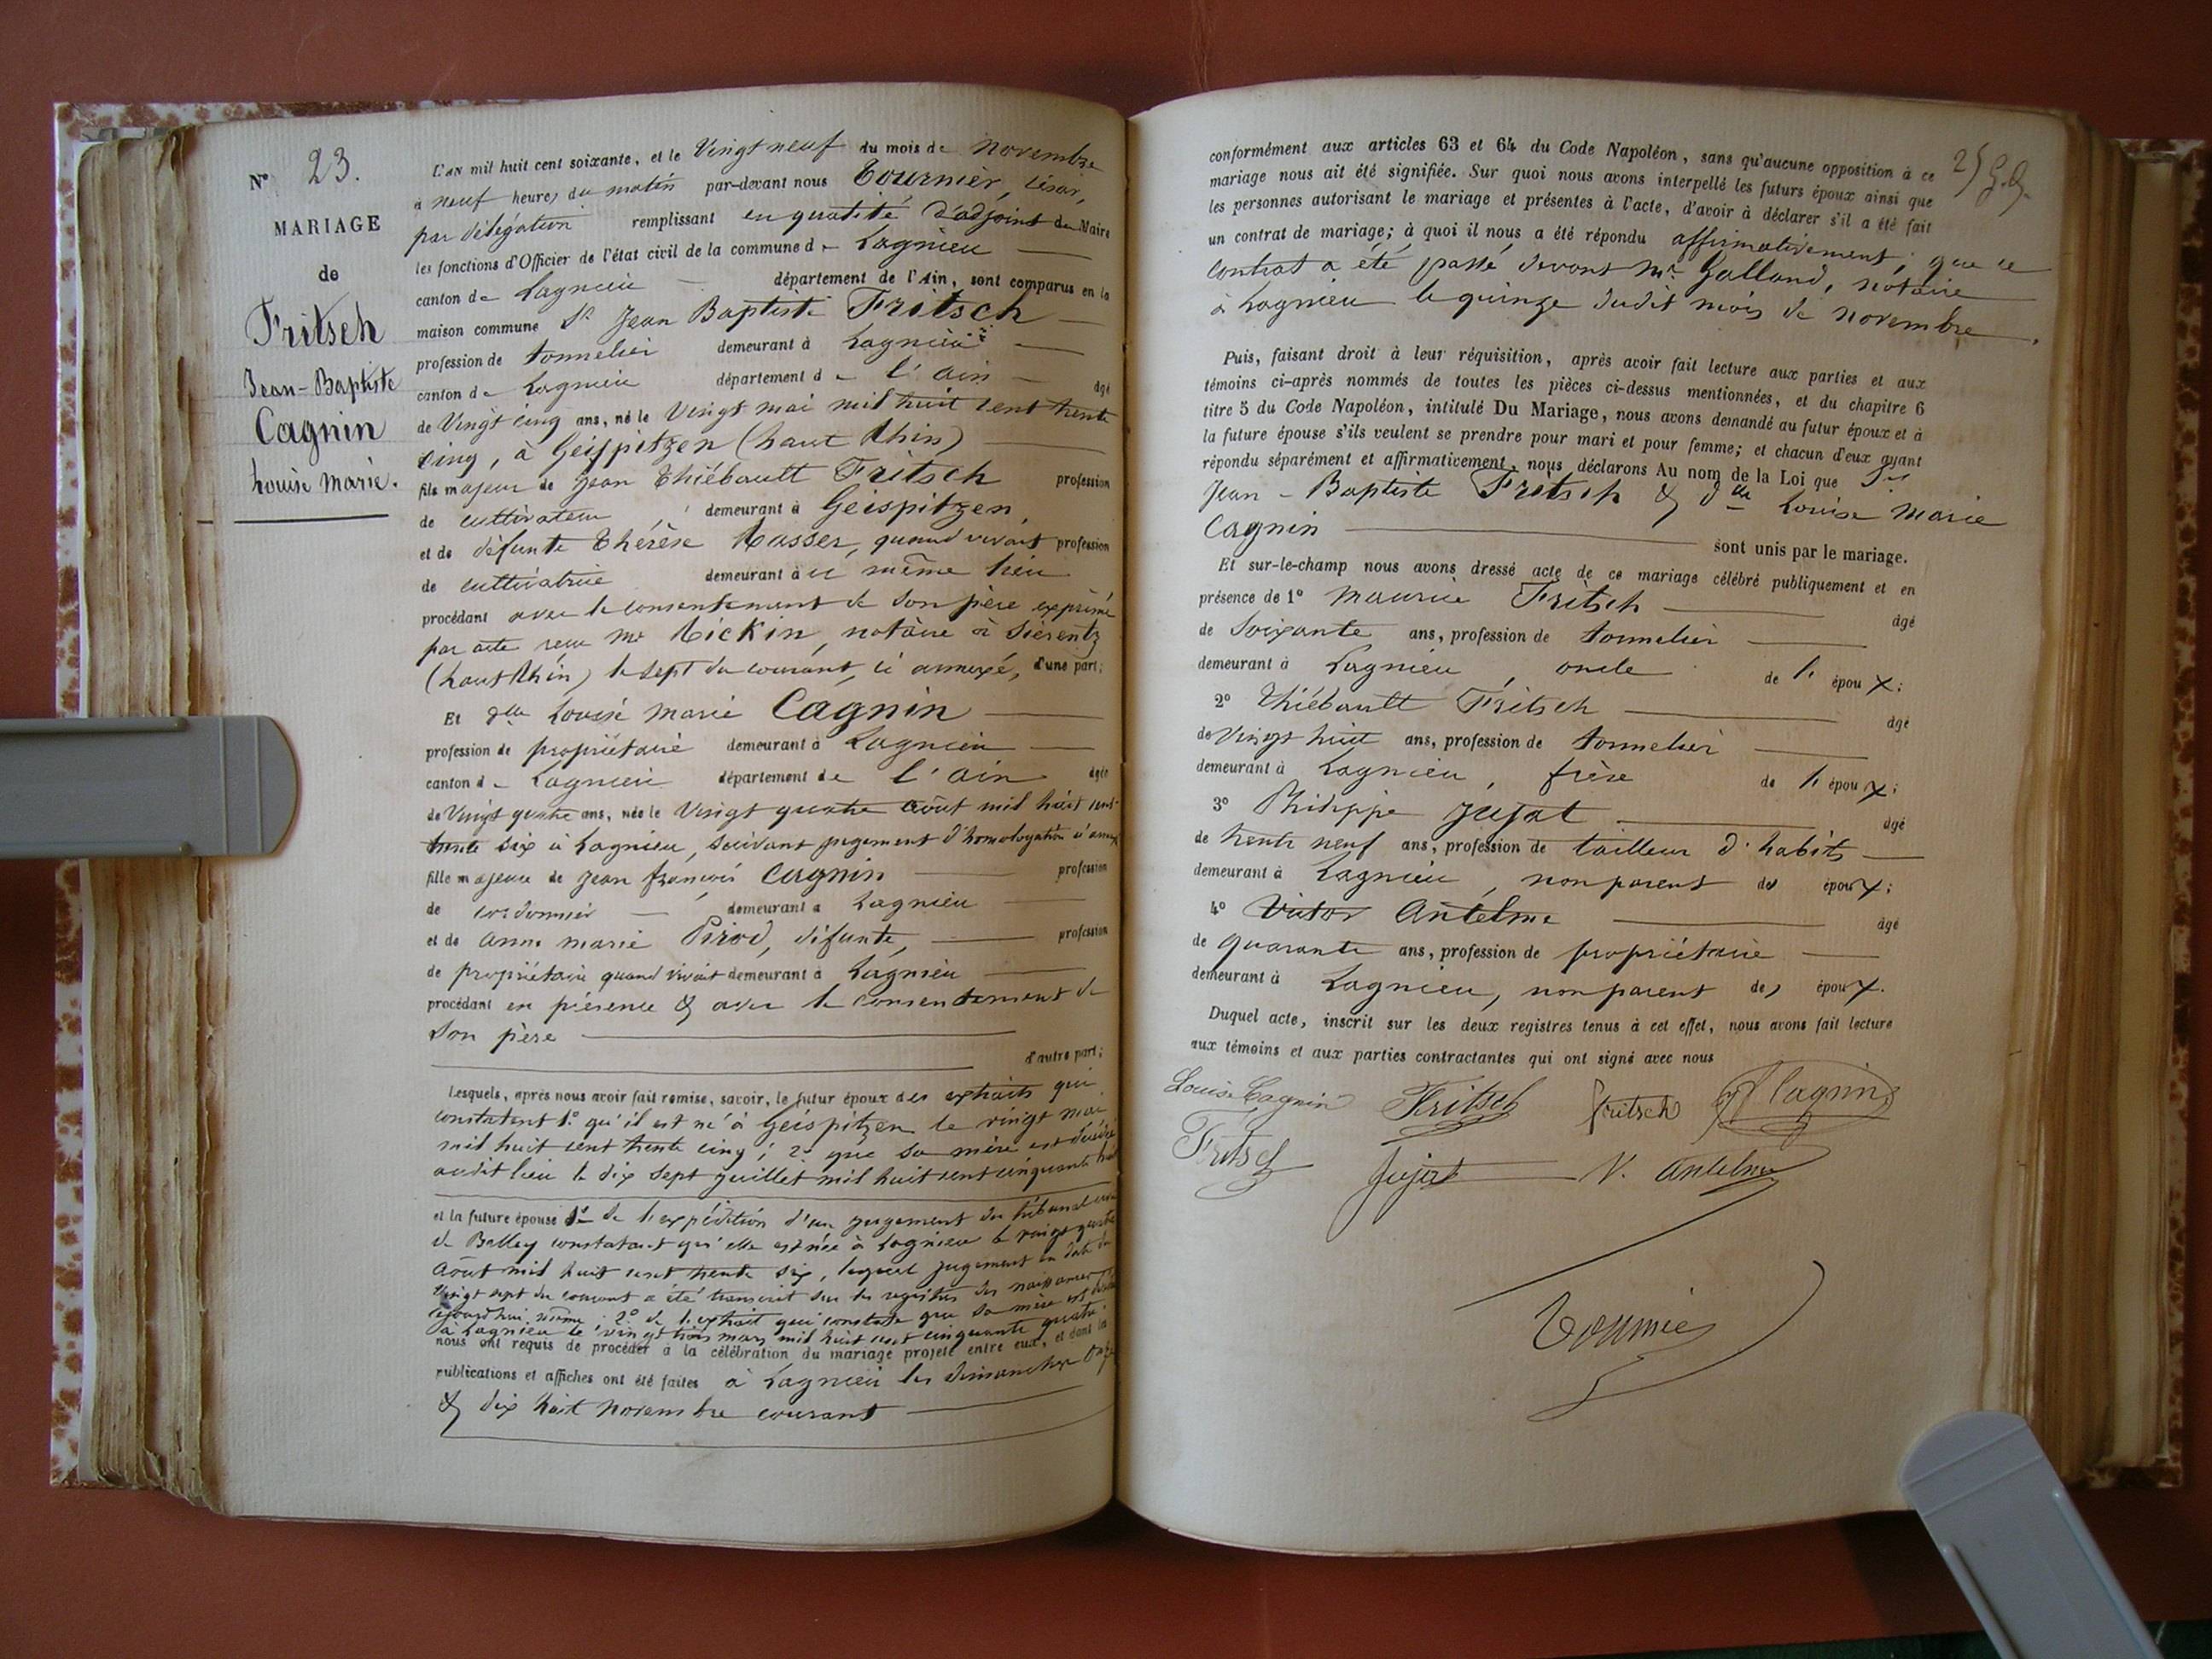 N° 23.
MARIAGE
de
Fritsch
Jean-Baptiste
Cagnin
Louise Marie.
L'AN mil huit cent soixante, et le Vingt neuf du mois de novembre
à neuf heures du matin par-devant nous Tournier, César,
par délégation remplissant en qualité d'adjoint du Maire
les fonctions d'Officier de l'état civil de la commune de Lagnieu
canton de Lagnieu département de l'Ain, sont comparus en la
maison commune Sr Jean Baptiste Fritsch
profession de tonnelier demeurant à Lagnieu
canton de Lagnieu département de l'ain âgé
de Vingt cinq ans, né le Vingt mai mil huit cent trente
cinq, à Geispitzen (haut Rhin)
fils majeur de Jean Thiébault Fritsch profession
de cultivateur demeurant à Geispitzen,
et de défunte Thérèse Hasser, quand vivait profession
de cultivatrice demeurant à ce même lieu
procédant avec le consentement de son père exprimé
par acte reçu Me Rickin, notaire à Sierentz
(haut Rhin) le sept du courant, ci annexé, d'une part;
Et Dlle Louise Marie Cagnin
profession de propriétaire demeurant à Lagnieu
canton de Lagnieu département de l'ain âgée
de Vingt quatre ans, née le Vingt quatre août mil huit cent
trente six à Lagnieu, suivant jugement d'homologation ci annexé
fille majeure de Jean françois Cagnin profession
de cordonnier demeurant à Lagnieu
et de anne marie Pirod, défunte, profession
de propriétaire quand vivait demeurant à Lagnieu
procédant en présence & avec le consentement de
son père
d'autre part;
Lesquels, après nous avoir fait remise, savoir, le futur époux des extraits qui
constatent 1° qu'il est né à Geispitzen le vingt mai
mil huit cent trente cinq; 2° que sa mère est décédée
audit lieu le dix sept juillet mil huit cent cinquante huit
et la future épouse 1° de l'expédition d'un jugement du tribunal civil
de Belley constatant qu'elle est née à Lagnieu le vingt quatre
août mil huit cent trente six, lequel jugement en date du
vingt sept du courant a été transcrit sur les registres des naissances
aujourd'hui même; 2° de l'extrait qui constate que sa mère est décédée
à Lagnieu le vingt trois mars mil huit cent cinquante quatre.
nous ont requis de procéder à la célébration du mariage projeté entre eux, et dont les
publications et affiches ont été faites à Lagnieu les dimanches onze
& dix huit novembre courant
25
conformément aux articles 63 et 64 du Code Napoléon, sans qu'aucune opposition à ce
mariage nous ait été signifiée. Sur quoi nous avons interpellé les futurs époux ainsi que
les personnes autorisant le mariage et présentes à l'acte, d'avoir à déclarer s'il a été fait
un contrat de mariage; à quoi il nous a été répondu affirmativement, que ce
contrat a été passé devant Me Galland, notaire
à Lagnieu le quinze dudit mois de novembre.
Puis, faisant droit à leur réquisition, après avoir fait lecture aux parties et aux
témoins ci-après nommés de toutes les pièces ci-dessus mentionnées, et du chapitre 6
titre 5 du Code Napoléon, intitulé Du Mariage, nous avons demandé au futur époux et à
la future épouse s'ils veulent se prendre pour mari et pour femme; et chacun d'eux ayant
répondu séparément et affirmativement, nous déclarons Au nom de la Loi que Srs
Jean-Baptiste Fritsch & Dlle Louise Marie
Cagnin sont unis par le mariage.
Et sur-le-champ nous avons dressé acte de ce mariage célébré publiquement et en
présence de 1° Maurice Fritsch âgé
de Soixante ans, profession de tonnelier
demeurant à Lagnieu, oncle de l' époux;
2° Thiébault Fritsch âgé
de Vingt huit ans, profession de tonnelier
demeurant à Lagnieu, frère de l' époux;
3° Philippe Jujat âgé
de trente neuf ans, profession de tailleur d'habits
demeurant à Lagnieu, non parent des époux;
4° Victor Antelme âgé
de quarante ans, profession de propriétaire
demeurant à Lagnieu, non parent des époux.
Duquel acte, inscrit sur les deux registres tenus à cet effet, nous avons fait lecture
aux témoins et aux parties contractantes qui ont signé avec nous
Louise Cagnin Fritsch fritsch Cagnin
Fritsch Jujat V. Antelme
Tournier